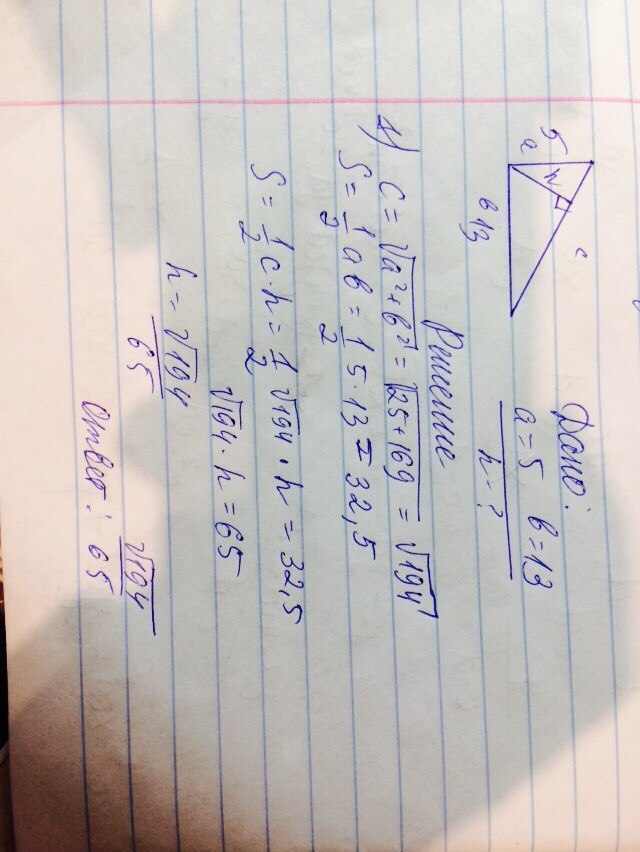 Дано:
a=5 b=13
h-?
5
a
h
c
b 13
Решение
1) c = √a²+b² = √25+169 = √194
S = 1/2 ab = 1/2 5·13 = 32,5
S = 1/2 c·h = 1/2 √194 · h = 32,5
√194 · h = 65
h = √194/65
Ответ: √194/65